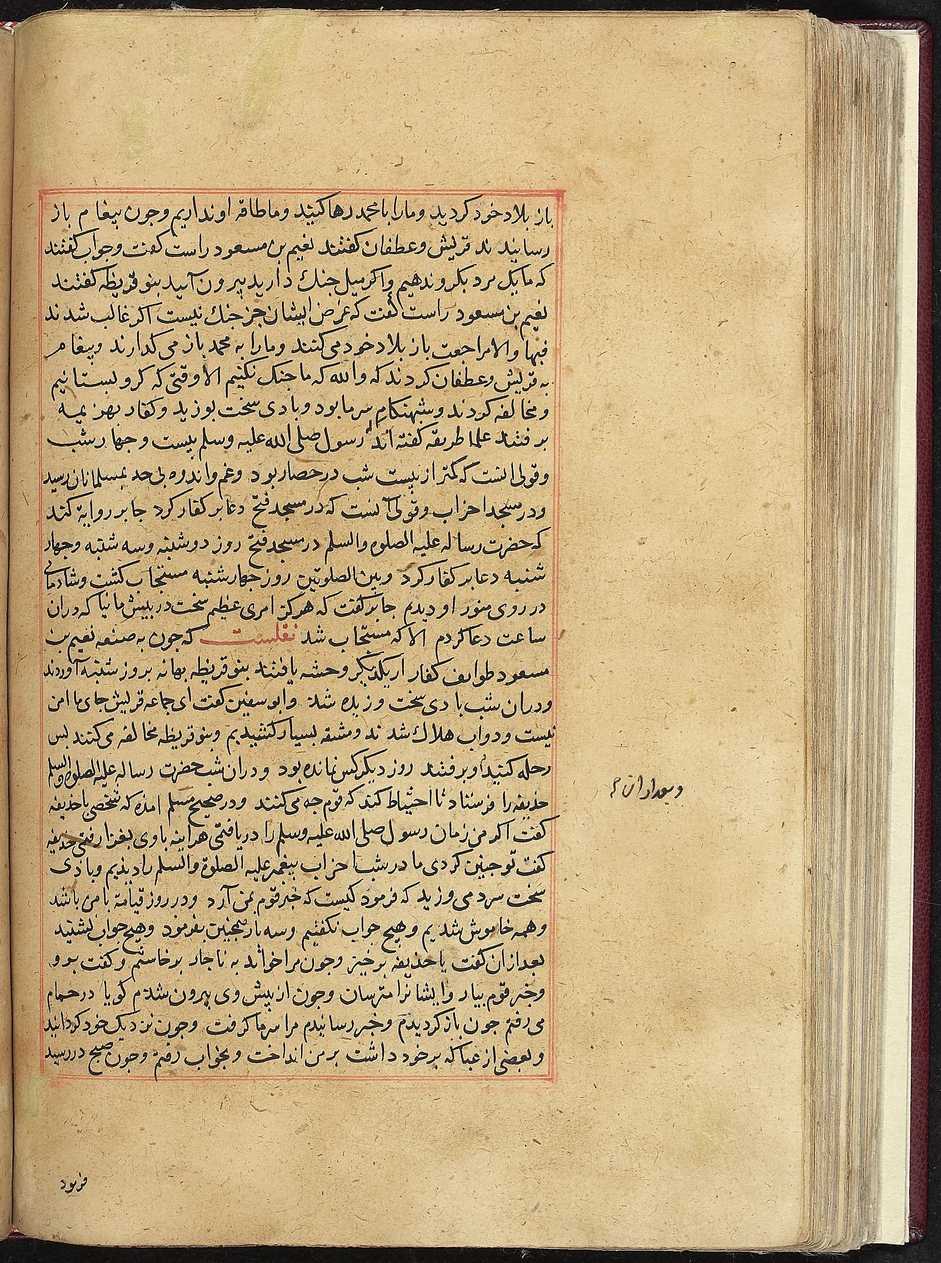 باز بلاد خود کردید و مارا با محمد رها کنید و ما طاقه او نداریم و جون پیغام باز
رسانیدند قریش و عطفان کفتند نعیم بن مسعود راست کفت و جواب کفتند
که ما یک مرد بکرو ندهیم و اکر میل جنك دارید بیرون آئید بنو قریظه کفتند
نعیم بن مسعود راست کفت که غرض ایشان جز جنك نیست اکر غالب شدند
فبها والا مراجعت باز بلاد خود می کنند و مارا به محمد باز می کذارند و پیغام
به قریش و عطفان کردند که والله که ما جنك نکنیم الا وقتی که کرو بستانیم
و مخالفه کردند و شبهنکام سرما بود و بادی سخت بوزید و کفار بهزیمه
برفتند علما طریقه کفته اند رسول صلی الله علیه وسلم بیست و جهار شب
و قولی انست که کمتر از بیست شب در حصار بود و غم و اندوه بی حد بمسلمانان رسید
و در مسجد احزاب و قولی آنست که در مسجد فتح دعا بر کفار کرد جابر روایة کند
که حضرت رساله علیه الصلوه والسلم در مسجد فتح روز دوشنبه و سه شنبه و جهار
شنبه دعا بر کفار کرد و بین الصلوتین روز جهارشنبه مستجاب کشت و شادمانی
در روی منور او دیدم جابر کفت که هرکز امری عظیم سخت در پیش ما نیامد که دران
ساعت دعا کردم الا که مستجاب شد نقلست که جون به صنعه نعیم بن
مسعود طوایف کفار از یکدیکر وحشه یافتند بنو قریظه بهانه بروز شنبه آوردند
و دران شب بادی سخت وزیده شد و ابو سفین کفت ای جماعه قریش جای ما امن
نیست و دواب هلاك شدند و مشقه بسیار کشیدیم و بنو قریظه مخالفه می کنند بس
رحله کنید و برفتند روز دیکر کس نمانده بود و دران شب حضرت رساله علیه الصلوه والسلم
حذیفه را فرستاد تا احتیاط کند که قوم جه می کنند و در صحیح مسلم امده که شخصی با حذیفه
کفت اکر من زمان رسول صلی الله علیه وسلم را دریافتمی هراینه با وی بغزا رفتمی حذیفه
کفت تو جنین کردی ما در شب احزاب پیغمبر علیه الصلوة والسلم را دیدیم و بادی
سخت سرد می وزید که فرمود کیست که خبر قوم بمن آرد و در روز قیامة با من باشد
و همه خاموش شدیم و هیج جواب نکفتیم و سه بار همجنین بفرمود و هیج جواب نشنید
بعد ازان کفت یا حذیفه برخیز و جون مرا خواند به ناجار برخاستم و کفت برو
و خبر قوم بیار و ایشانرا مترسان و جون از پیش وی بیرون شدم کویا در حمام
می رفتم جون باز کردیدم و خبر رسانیدم مرا سرما کرفت و جون نزدیک خود کردانید
و بعضی از عبا که بر خود داشت بر من انداخت و بخواب رفتم و جون صبح در رسید
فرمود